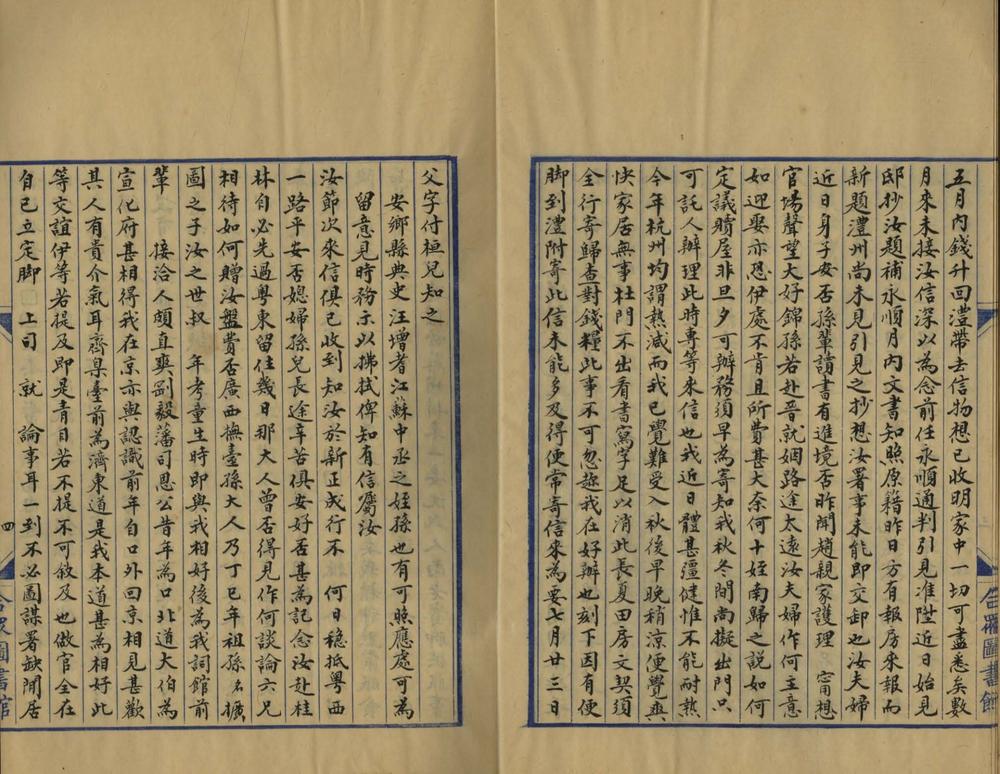 五月內錢升回澧帶去信物想已收明家中一切可盡悉矣數
月來未接汝信深以為念前任永順通判引見准陞近日始見
邸抄汝題補永順月內文書知照原籍昨日方有報房來報而
新題澧州尚未見引見之抄想汝署事未能即交卸也汝夫婦
近日身子安否孫輩讀書有進境否昨聞趙親家護理 甯想
官場聲望大好錦孫若赴晉就姻路途太遠汝夫婦作何主意
如迎娶亦恐伊處不肯且所費甚大奈何十姪南歸之說如何
定議贖屋非旦夕可辦務須早為寄知我秋冬間尚擬出門只
可託人辦理此時專等來信也我近日體甚彊健惟不能耐熱
今年杭州均謂熱減而我已覺難受入秋後早晚稍涼便覺爽
快家居無事杜門不出看書寫字足以消此長夏田房文契須
全行寄歸查對錢糧此事不可忽趂我在好辦也刻下因有便
脚到澧附寄此信未能多及得便常寄信來為要七月廿三日
合眾圖書館
父字付桓兒知之
安鄉縣典史汪增者江蘇中丞之姪孫也有可照應處可為
留意見時務示以拂拭俾知有信屬汝
汝節次來信俱已收到知汝於新正成行不 何日穩抵粵西
一路平安否媳婦孫兒長途辛苦俱安好否甚為記念汝赴桂
林自必先過粵東留住幾日那大人曾否得見作何談論六兄
相待如何贈汝盤費否廣西撫臺孫大人乃丁巳年祖孫名擴
圖之子汝之世叔 年考童生時即與我相好後為我詞館前
輩 接洽人頗直爽剛毅藩司恩公昔年為口北道大伯為
宣化府甚相得我在京亦與認識前年自口外回京相見甚歡
其人有貴介氣耳齊臬臺前為濟東道是我本道甚為相好此
等交誼伊等若提及即是青目若不提不可敘及也做官全在
自己立定脚 上司 就 論事耳一到不必圖謀署缺閒居
四
合眾圖書館